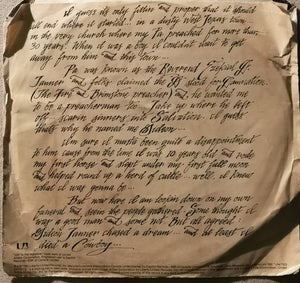 I guess its only fittin' and proper that it should
all end where it started... in a dusty West Texas town...
in the very church where my Pa preached for more than
30 years. When I was a boy I couldn't wait to get
away from him and this town...
Pa was known as the Reverend Ezekiel J.
Tanner and folks claimed the J. stood for Damnation.
(The Fire and Brimstone preacher) and he wanted me
to be a preacherman too. Take up where he left
off scarin sinners into Salvation. I guess
thats why he named me Gideon...
I'm sure it musta been quite a disappointment
to him cause from the time I was 10 years old and rode
my first horse and slept under my first full moon
and helped round up a herd of cattle... well I knew
what I was gonna be...
But now here I am lookin down on my own
funeral and seein the people gathered. Some thought I
was a good man and some not. But all agreed
Gideon Tanner chased a dream... and at least he
died a Cowboy...
UA